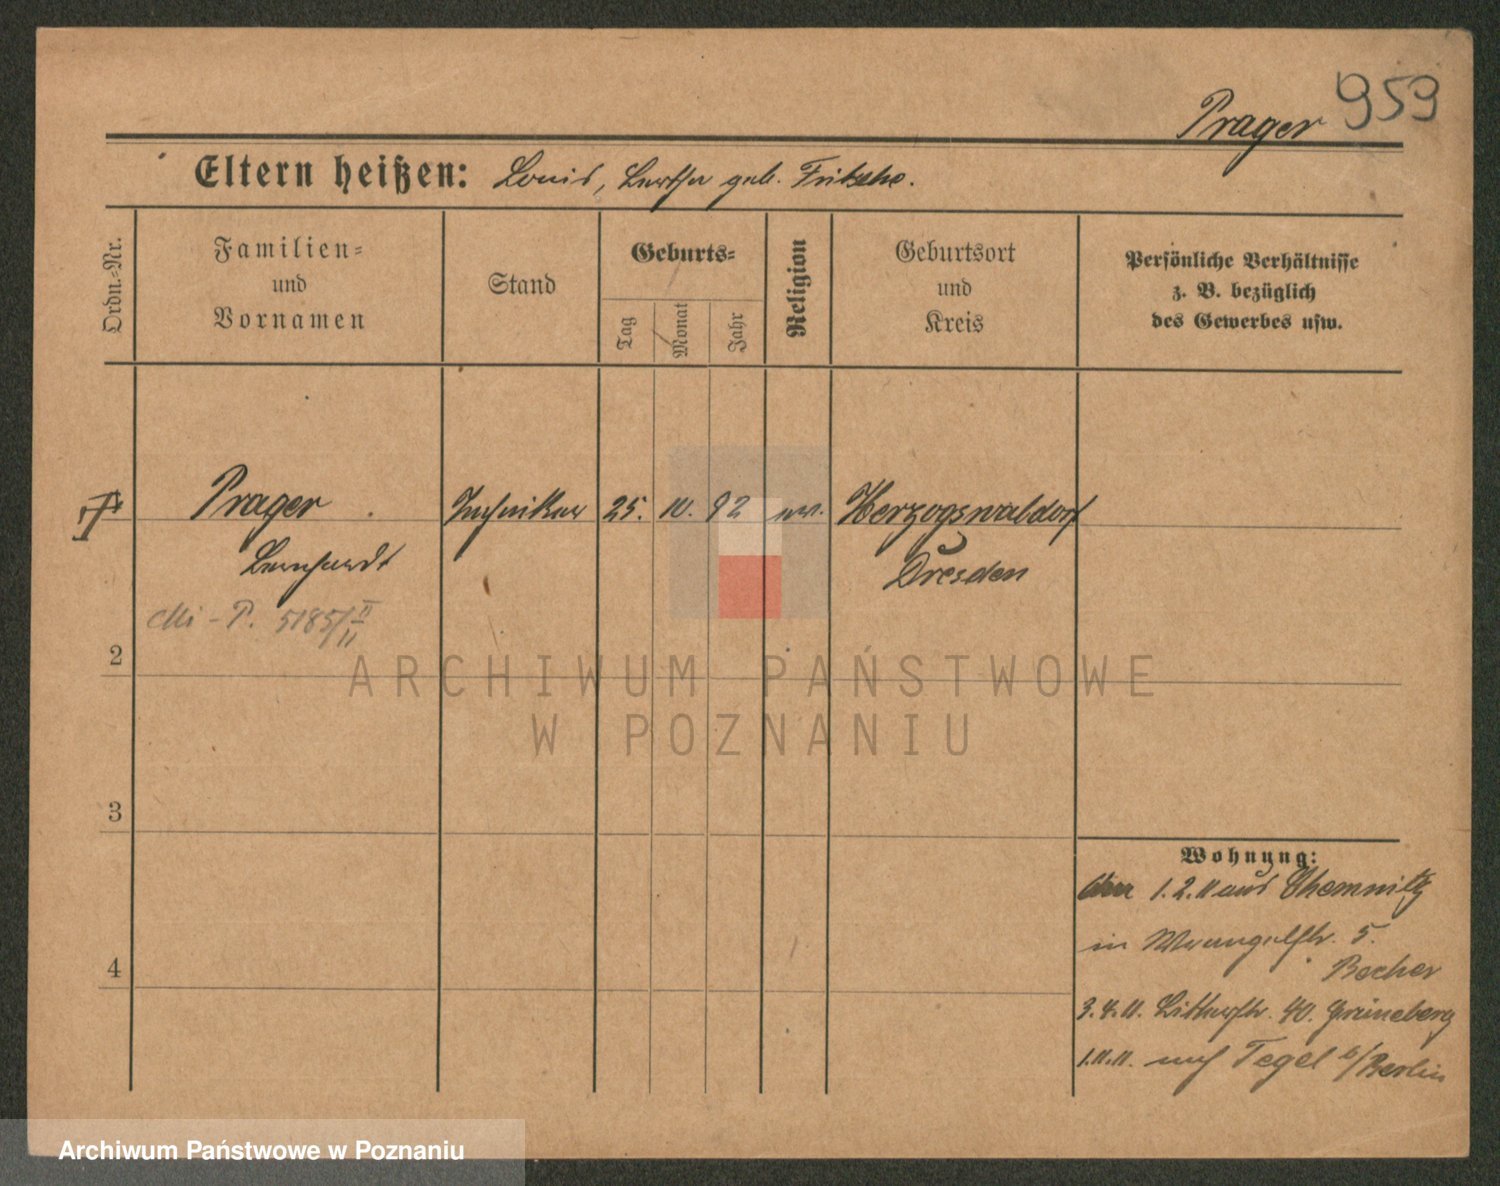 959
Prager
Eltern heißen: Louis, Bertha geb. Fritsche.
Ordn.-Nr.
Familien-
und
Vornamen
Stand
Geburts-
Tag
Monat
Jahr
Religion
Geburtsort
und
Kreis
Persönliche Verhältnisse
z. B. bezüglich
des Gewerbes usw.
Prager Techniker 25. 10. 92 ev. Herzogswaldorf
Bernhardt Dresden
Mi - P. 5185/II
2
ARCHIWUM PAŃSTWOWE
W POZNANIU
3
Wohnung:
1.2.11 aus Chemnitz
4
in Wrangelstr. 5.
Becher
3.4.11. Bitterstr. 40. Grüneberg
1.11.11. nach Tegel b/Berlin
Archiwum Państwowe w Poznaniu